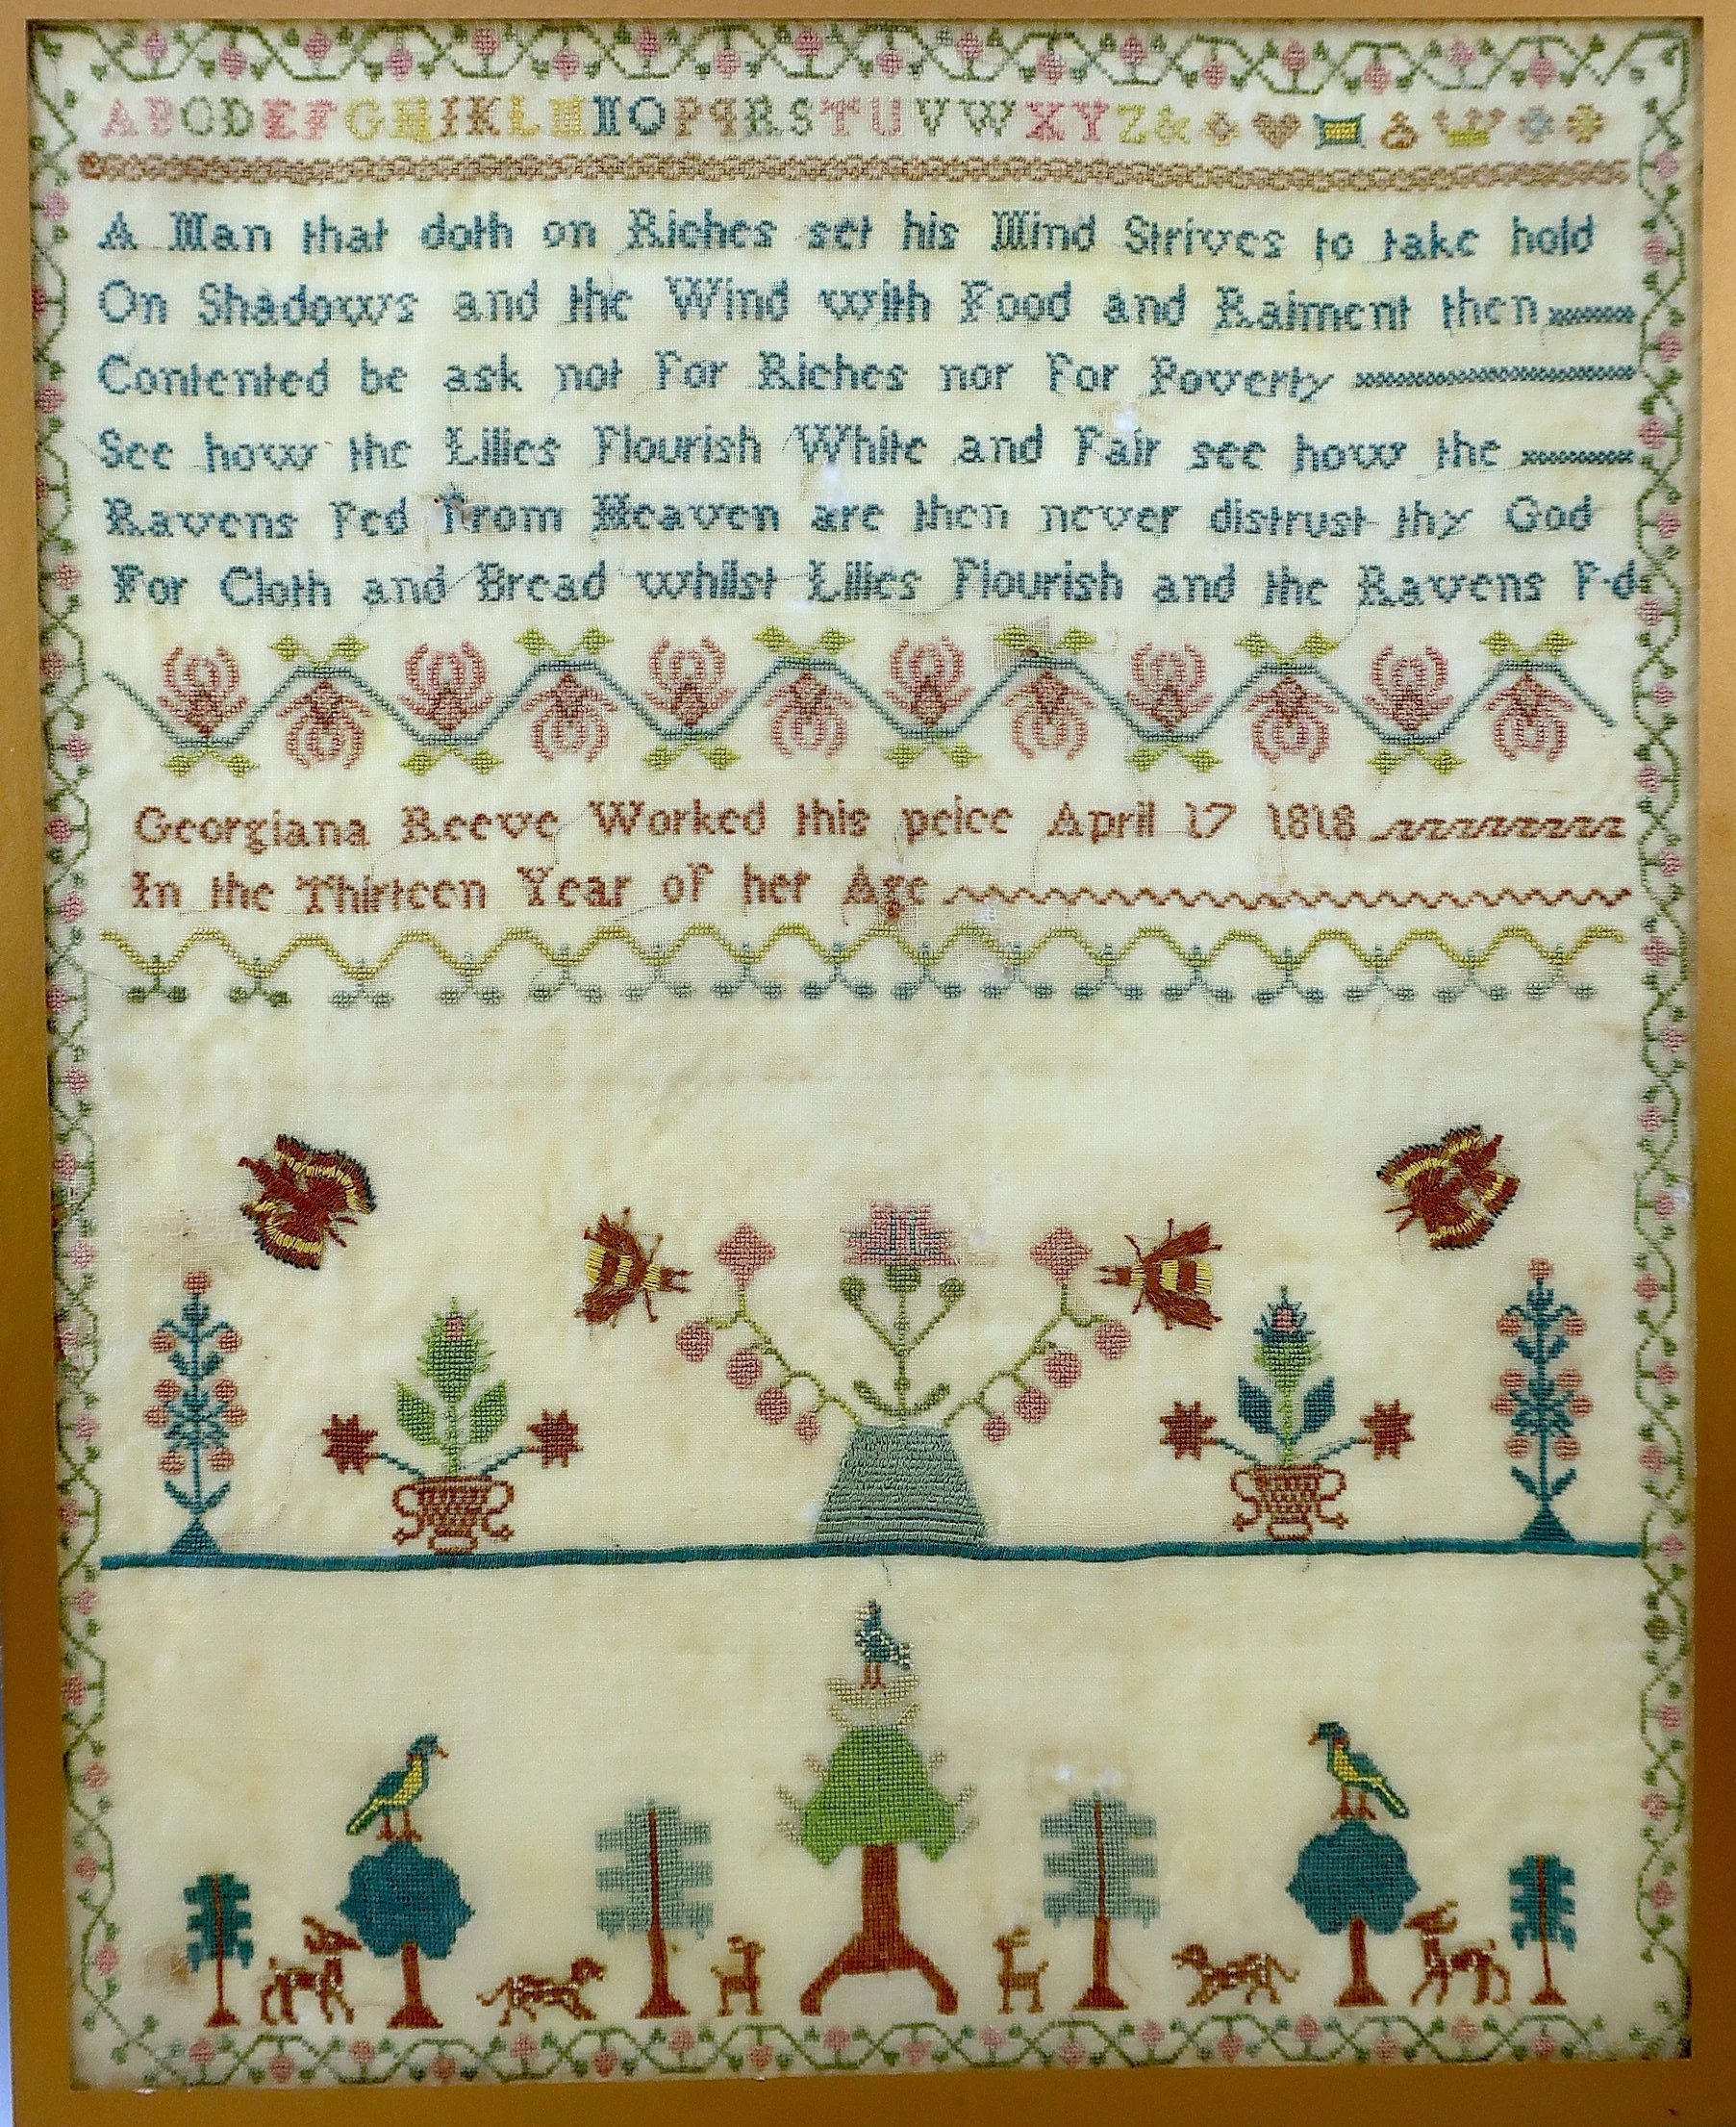 A B C D E F G H I K L M N O P Q R S T U V W X Y Z &
A Man that doth on Riches set his Mind Strives to take hold
On Shadows and the Wind with Food and Raiment then
Contented be ask not For Riches nor For Poverty
See how the Lilies Flourish White and Fair see how the
Ravens Fed From Heaven are then never distrust thy God
For Cloth and Bread whilst Lilies Flourish and the Ravens F-d
Georgiana Reeve Worked this peice April 17 1818
In the Thirteen Year of her Age